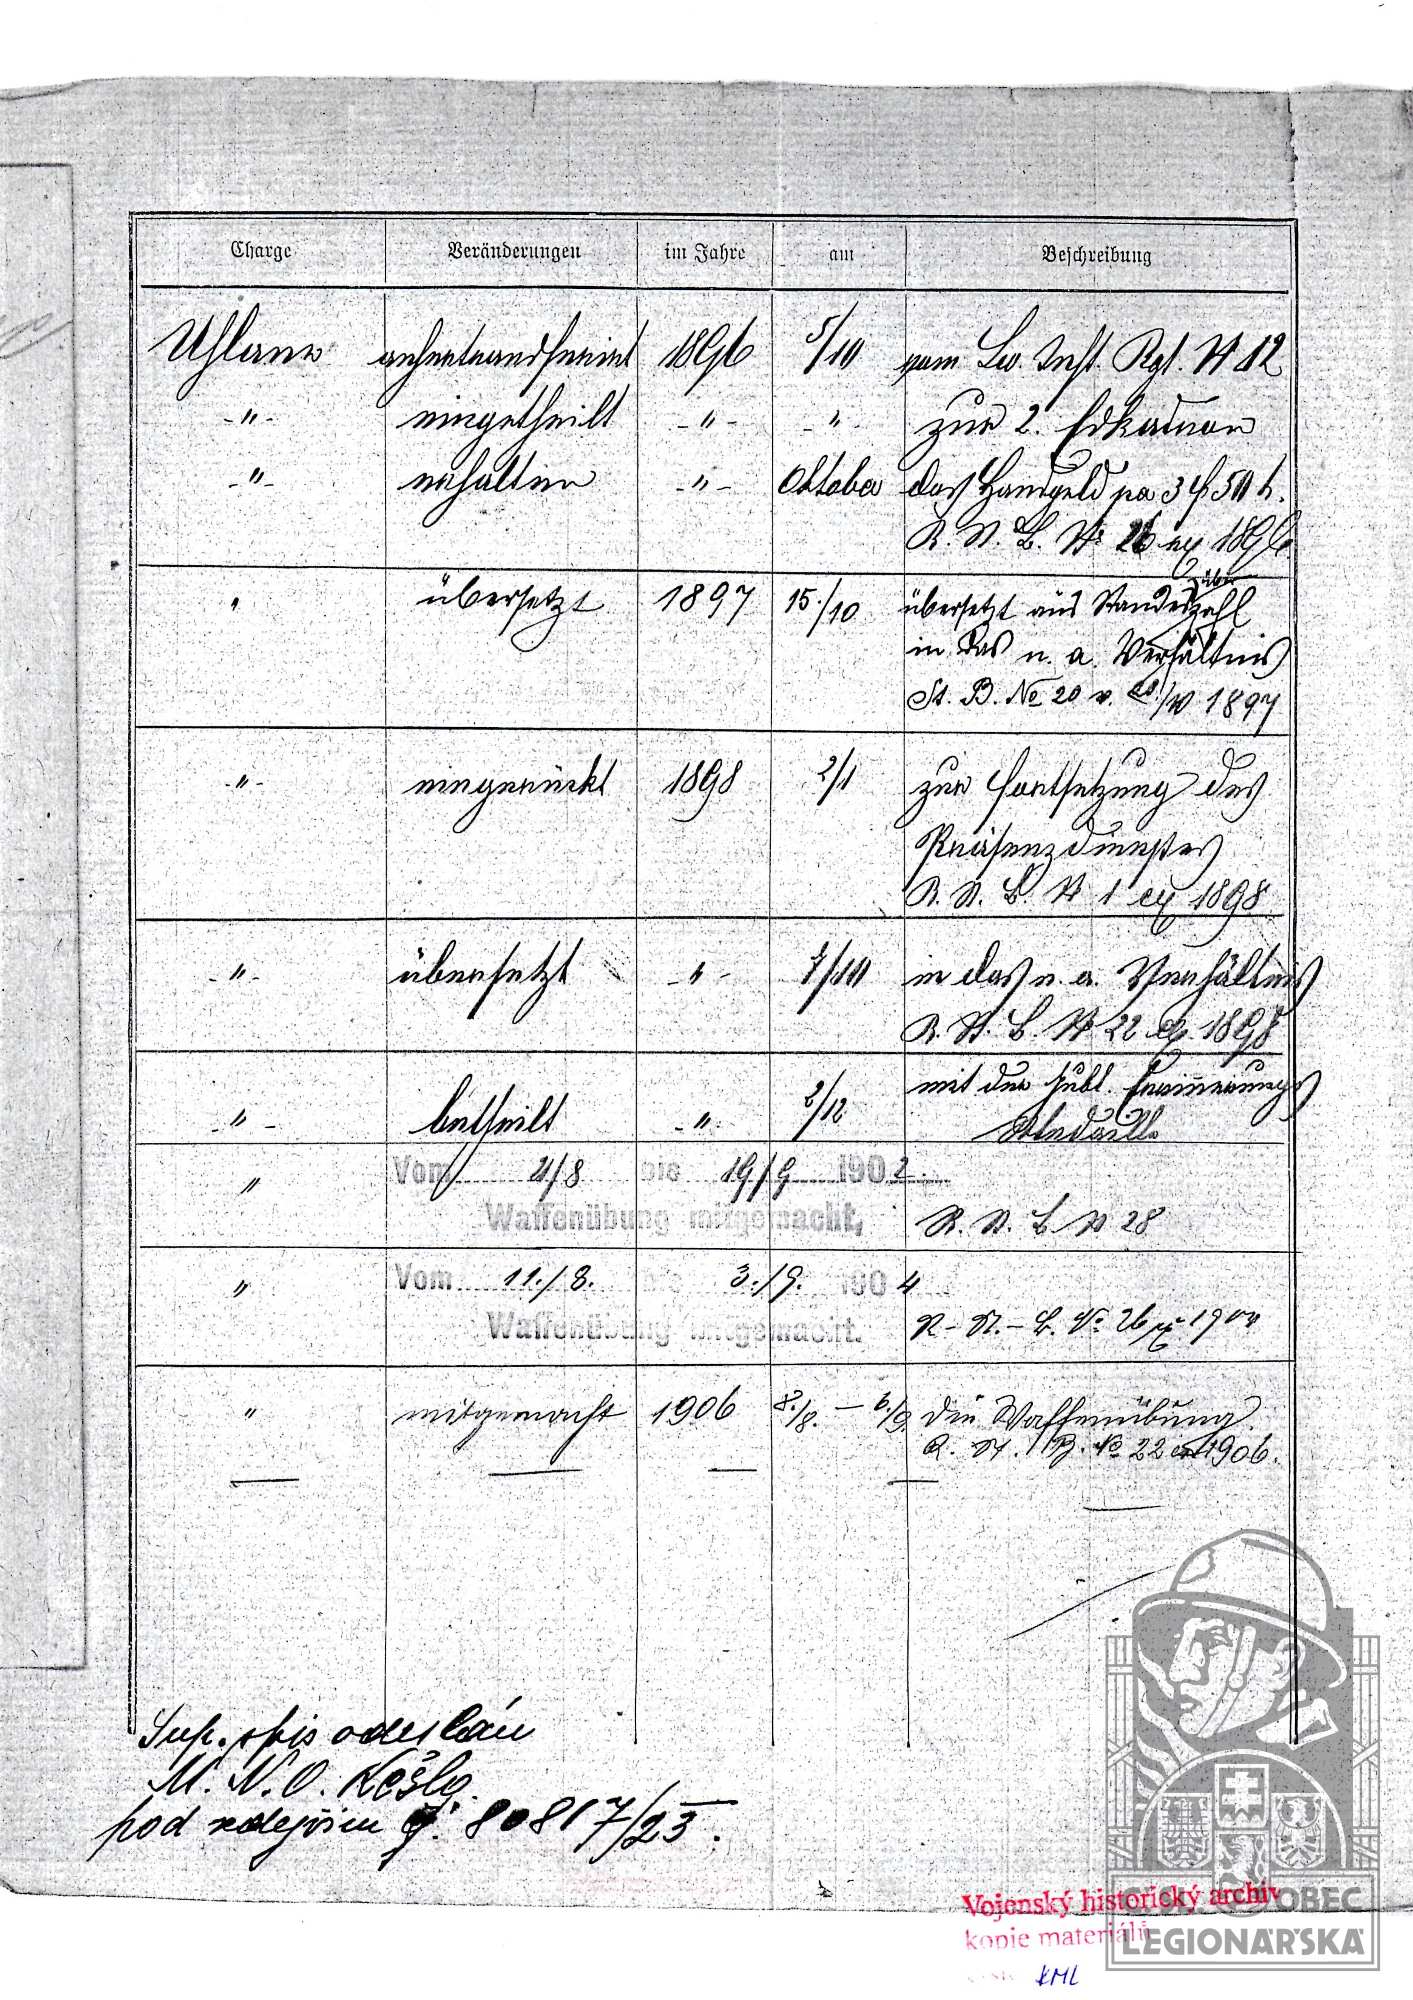 Charge Veränderungen im Jahre am Beschreibung
Uhlane 1896 5/10 vom Lw. Inft. Rgt. № 12
-"- eingetheilt -"- -"- zur 2. Eskadron
-"- erhalten -"- Oktober das Handgeld pa 3 f 50 h.
R. St. B. № 26 ex 1896
" übersetzt 1897 15./10 übersetzt aus Standes über zahl
in das n. a. Verhältnis
St. B. № 20 v. /10 1897
-"- eingerückt 1898 2/1 zur Fortsetzung des
Präsenzdienstes
R. St. B. № 1 ex 1898
-"- übersetzt -"- 1/10 in das n. a. Verhältnis
R. St. B. № 22 ex 1898
-"- betheilt -"- 2/12 mit der Jubl. Erinnerungs
Medaille
" Vom 4/8 bis 19/9 1902
Waffenübung mitgemacht, R. St. B № 28
" Vom 11./8. bis 3./9. 1904
Waffenübung mitgemacht. R-St.-B. № 26 ex
" mitgemacht 1906 8./8. – 6./9. die Waffenübung.
R. St. B. № 22 ex 1906.
Sup. spis odeslán
M. N. O. Košly.
pod zdejším č. 80817/23.
OBEC
LEGIONÁŘSKÁ
Vojenský historický archiv
kopie materiálů
KML